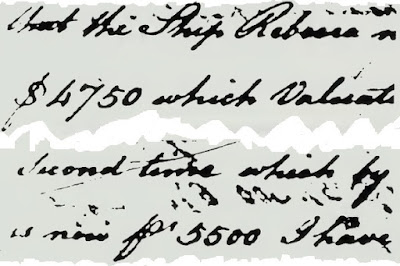 that the Ship Rebecca
$ 4750 which Valuat
second time which by
is now 5500 I have